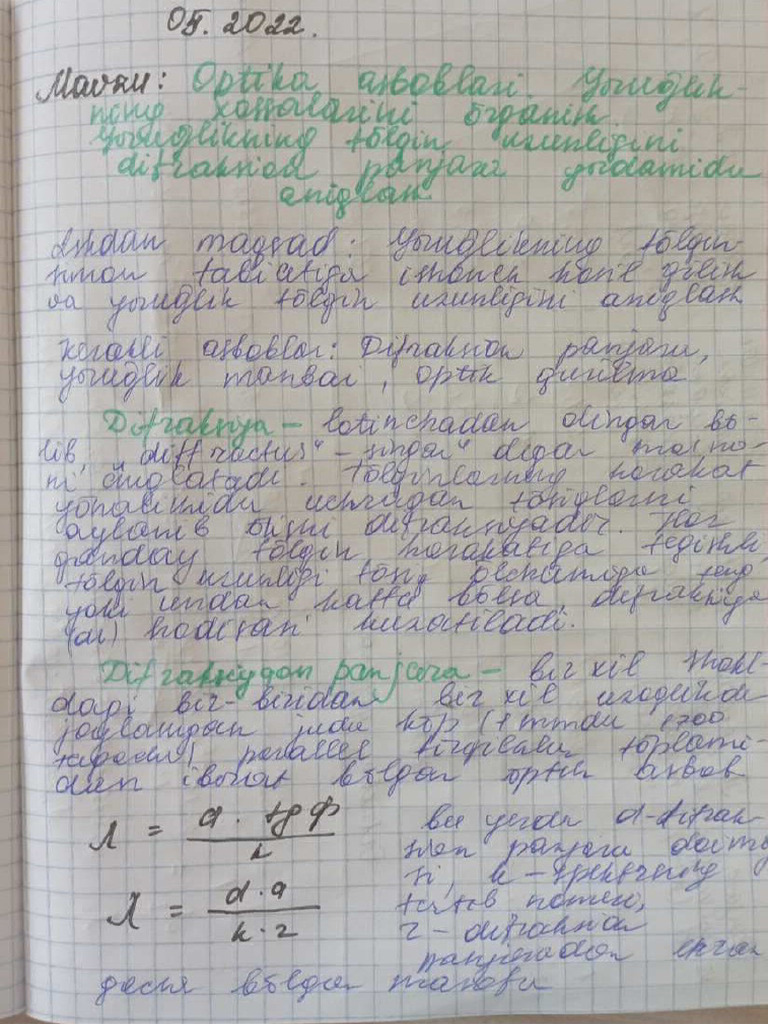 05. 2022.
Mavzu: Optika asboblari. Yorug'lik-
ning xossalarini o'rganish.
Yorug'likning to'lqin uzunligini
difraksion panjara yordamida
aniqlash
Ishdan maqsad: Yorug'likning to'lqin-
simon tabiatiga ishonch hosil qilish
va yorug'lik to'lqin uzunligini aniqlash
Kerakli asboblar: Difraksion panjara,
yorug'lik manbai, optik qurilma
Difraksiya – lotinchadan olingan bo'-
lib, "diffractus" – singan" degan ma'no-
ni anglatadi. To'lqinlarning harakat
yo'nalishida uchragan to'siqlarni
aylanib o'tishi difraksiyadir. Har
qanday to'lqin harakatiga tegishli,
to'lqin uzunligi to'siq o'lchamiga teng
yoki undan katta bo'lsa, difraksiya
hodisasi kuzatiladi.
Difraksiyon panjara – bir xil shakl-
dagi bir-biridan bir xil uzoqlikda
joylashgan juda ko'p (1 mmda 1200
tagacha) parallel tirqishlar to'plami-
dan iborat bo'lgan optik asbob
λ = d · tg φ / k
bu yerda d-difrak-
sion panjara doimiy-
si, k – spektrning
λ = d · a / k · r
tartib nomeri,
r – difraksion
panjaradan ekran
gacha bo'lgan masofa